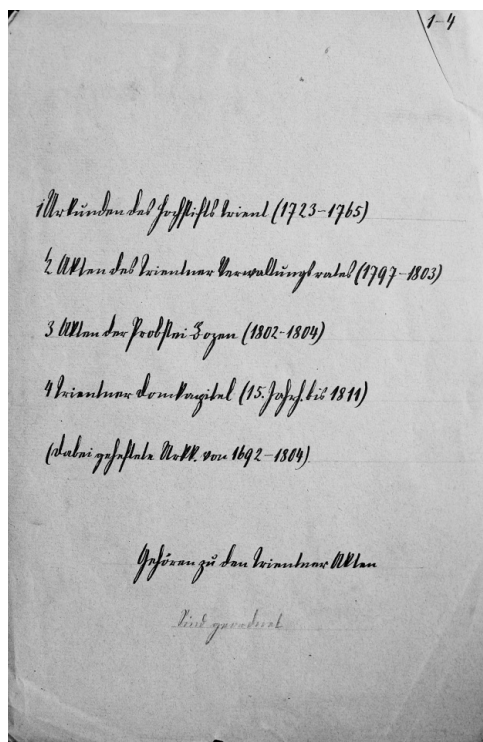 1-4
1 Urkunden des Hochstifts Trient (1723-1765)
2 Akten des Trientner Verwaltungsrates (1797-1803)
3 Akten der Probstei Bozen (1802-1804)
4 Trientner Domkapitel (15. Jahrh. bis 1811)
(dabei geheftete Urkk. von 1692-1804)
Gehören zu den Trientner Akten
Sind geordnet